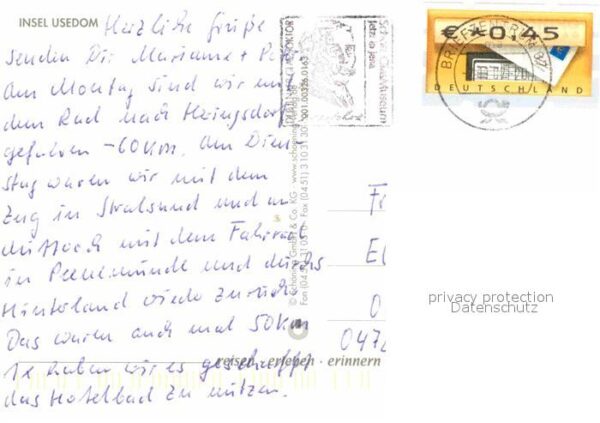 INSEL USEDOM
Herzliche Grüße
senden Dir Marianne + Pe
Am Montag sind wir mit
dem Rad nach Heringsdorf
gefahren -60km. Am Dien
stag waren wir mit dem
Zug in Stralsund und am
Mittwoch mit dem Fahrrad
in Peenemünde und durchs
Hinterland wieder zurück.
Das waren auch mal 50km
1x haben wir es geschafft
das Hotelbad zu nutzen.
reisen · erleben · erinnern
© Schöning GmbH & Co. KG · www.schoening-verlag.de
Fon (04 51) 3 10 31 0 · Fax (04 51) 3 10 31 30
001.00326.0163
Schott GlasMuseum
Jetzt in Jena
BRIEFZENTRUM 07
€*0,45
DEUTSCHLAND
F
E
0
047
privacy protection
Datenschutz